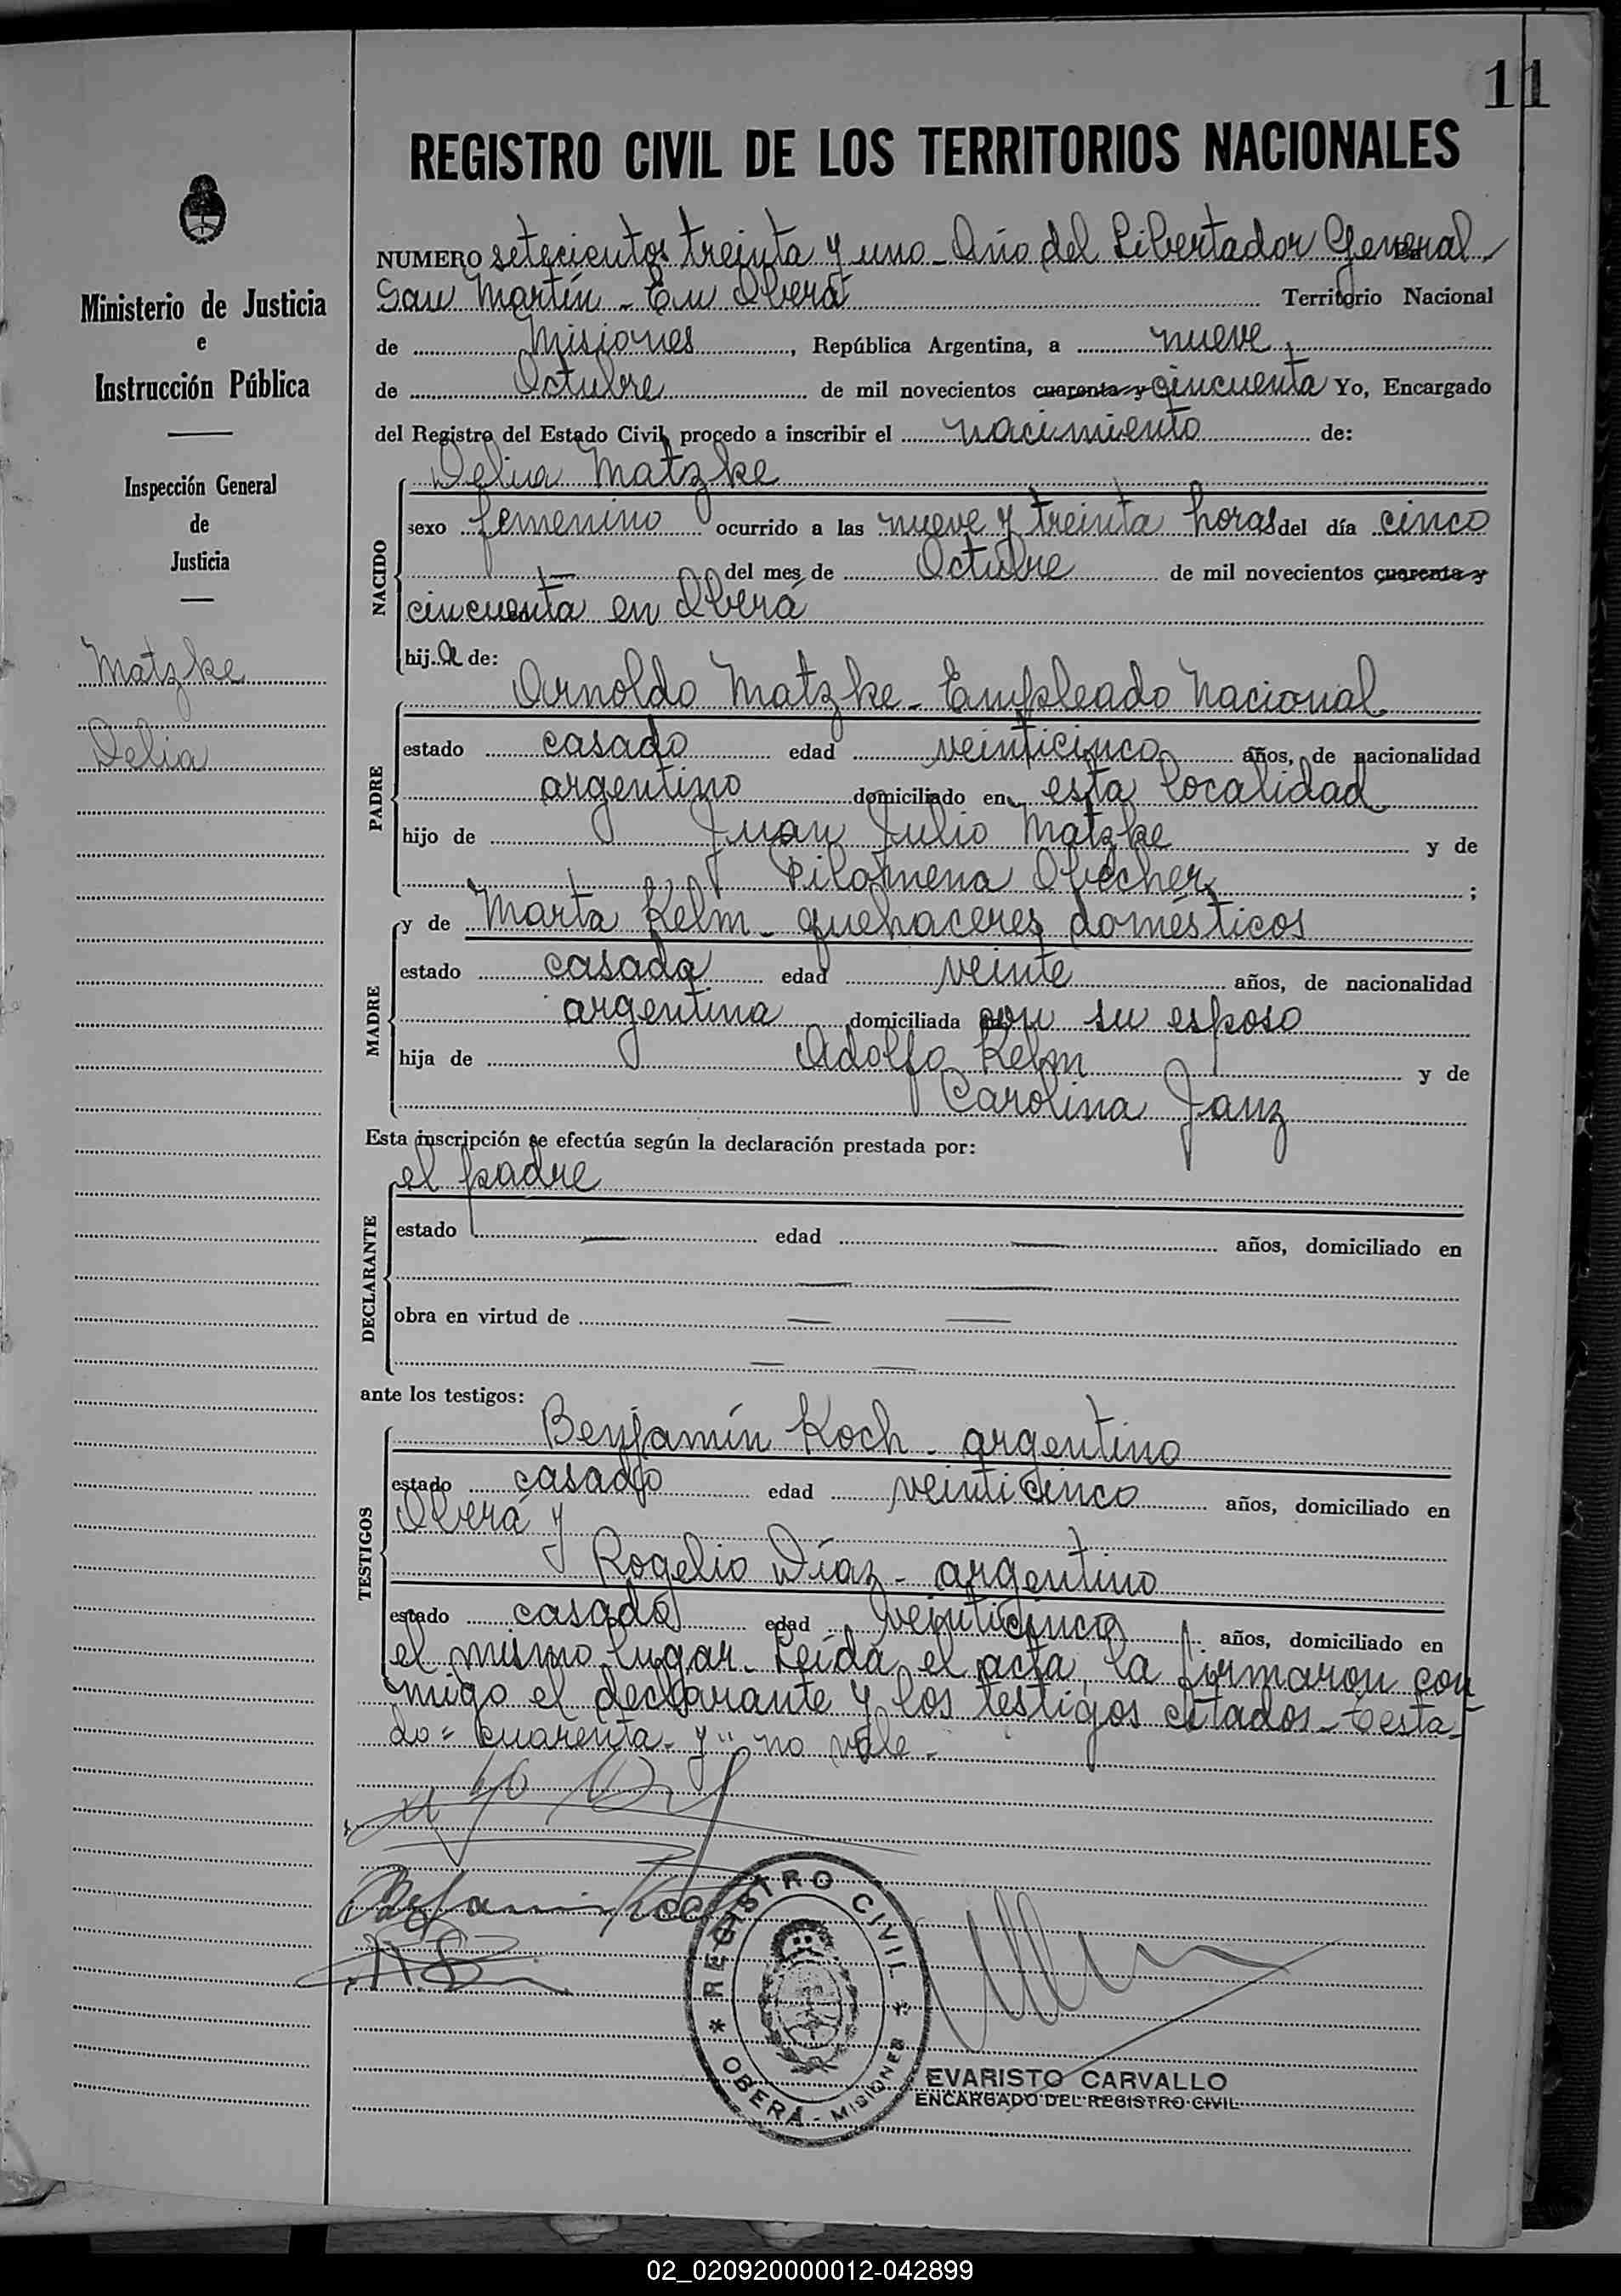 11
REGISTRO CIVIL DE LOS TERRITORIOS NACIONALES
Ministerio de Justicia
e
Instrucción Pública
Inspección General
de
Justicia
Matzke
Delia
NUMERO setecientos treinta y uno - Año del Libertador General
San Martín - En Oberá Territorio Nacional
de Misiones, República Argentina, a nueve
de Octubre de mil novecientos cuarenta y cincuenta Yo, Encargado
del Registro del Estado Civil, procedo a inscribir el nacimiento de:
NACIDO
Delia Matzke
sexo femenino ocurrido a las nueve y treinta horas del día cinco
del mes de Octubre de mil novecientos cuarenta y
cincuenta en Oberá
hija de:
PADRE
Arnoldo Matzke - Empleado Nacional
estado casado edad veinticinco años, de nacionalidad
argentino domiciliado en esta localidad
hijo de Juan Julio Matzke y de
Filomena ;
MADRE
y de Marta Kelm - quehaceres domésticos
estado casada edad veinte años, de nacionalidad
argentina domiciliada con su esposo
hija de Adolfo Kelm y de
Carolina Janz
Esta inscripción se efectúa según la declaración prestada por:
DECLARANTE
el padre
estado — edad — años, domiciliado en
obra en virtud de
ante los testigos:
TESTIGOS
Benjamín Koch - argentino
estado casado edad veinticinco años, domiciliado en
Oberá y
Rogelio Díaz - argentino
estado casado edad veinticinco años, domiciliado en
el mismo lugar. Leída el acta, la firmaron con
migo el declarante y los testigos citados - Testa-
do = cuarenta - y" no vale -
Benjamin Koch
REGISTRO CIVIL
* OBERÁ - MISIONES *
EVARISTO CARVALLO
ENCARGADO DEL REGISTRO CIVIL
02_020920000012-042899